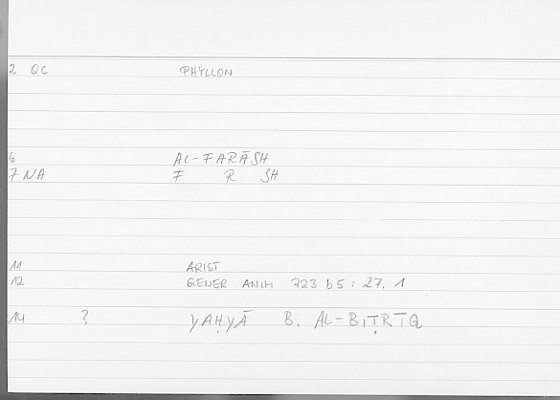 2 QC PHYLLON
6 AL-FARĀSH
7 NA F R SH
11 ARIST
12 GENER ANIM 723 b5 : 27. 1
14 ? YAḤYĀ B. AL-BIṬRĪQ